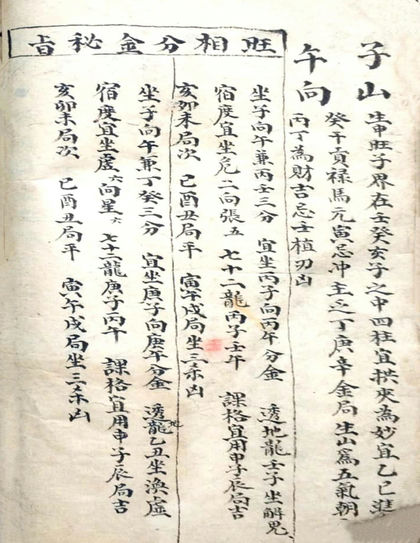 子山
午向
生申旺子界在壬癸亥子之中四柱宜拱夾為妙宜乙巳
癸干貢祿馬元寅忌冲主之丁庚辛金局生山為五氣朝
丙丁為財吉忌壬植刃凶
旺相分金秘旨
坐子向午兼丙壬三分 宜坐丙子向丙午分金 透地龍壬子坐解鬼
宿度宜坐危二向張五 七十二龍丙子壬午 課格宜用申子辰局吉
亥卯未局次 巳酉丑局平 寅午戌局坐三杀凶
坐子向午兼丁癸三分 宜坐庚子向庚午分金 透地龍乙丑坐渙虛
宿度宜坐虛六向星六 七十二龍庚子丙午 課格宜用申子辰局吉
亥卯未局次 巳酉丑局平 寅午戌局坐三杀凶